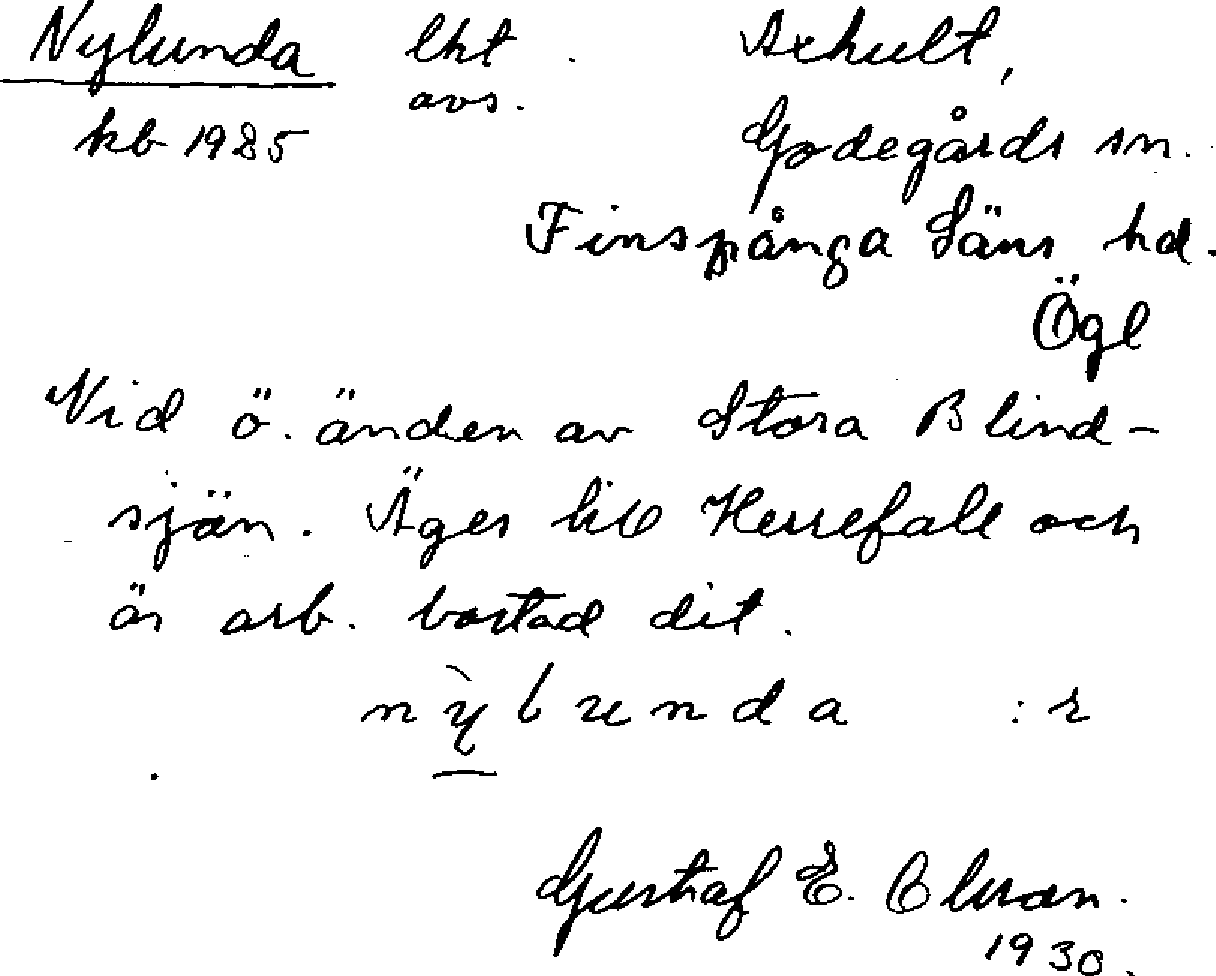 Nylunda lht Axhult,
avs.
kb 1925 Godegårds sn.
Finspånga läns hd.
Ögl
Vid ö. änden av Stora Blind-
sjön. Äges till Herrefall och
är arb. bostad dit.
nỳlunda :r
Gustaf E. Olsson.
1930.